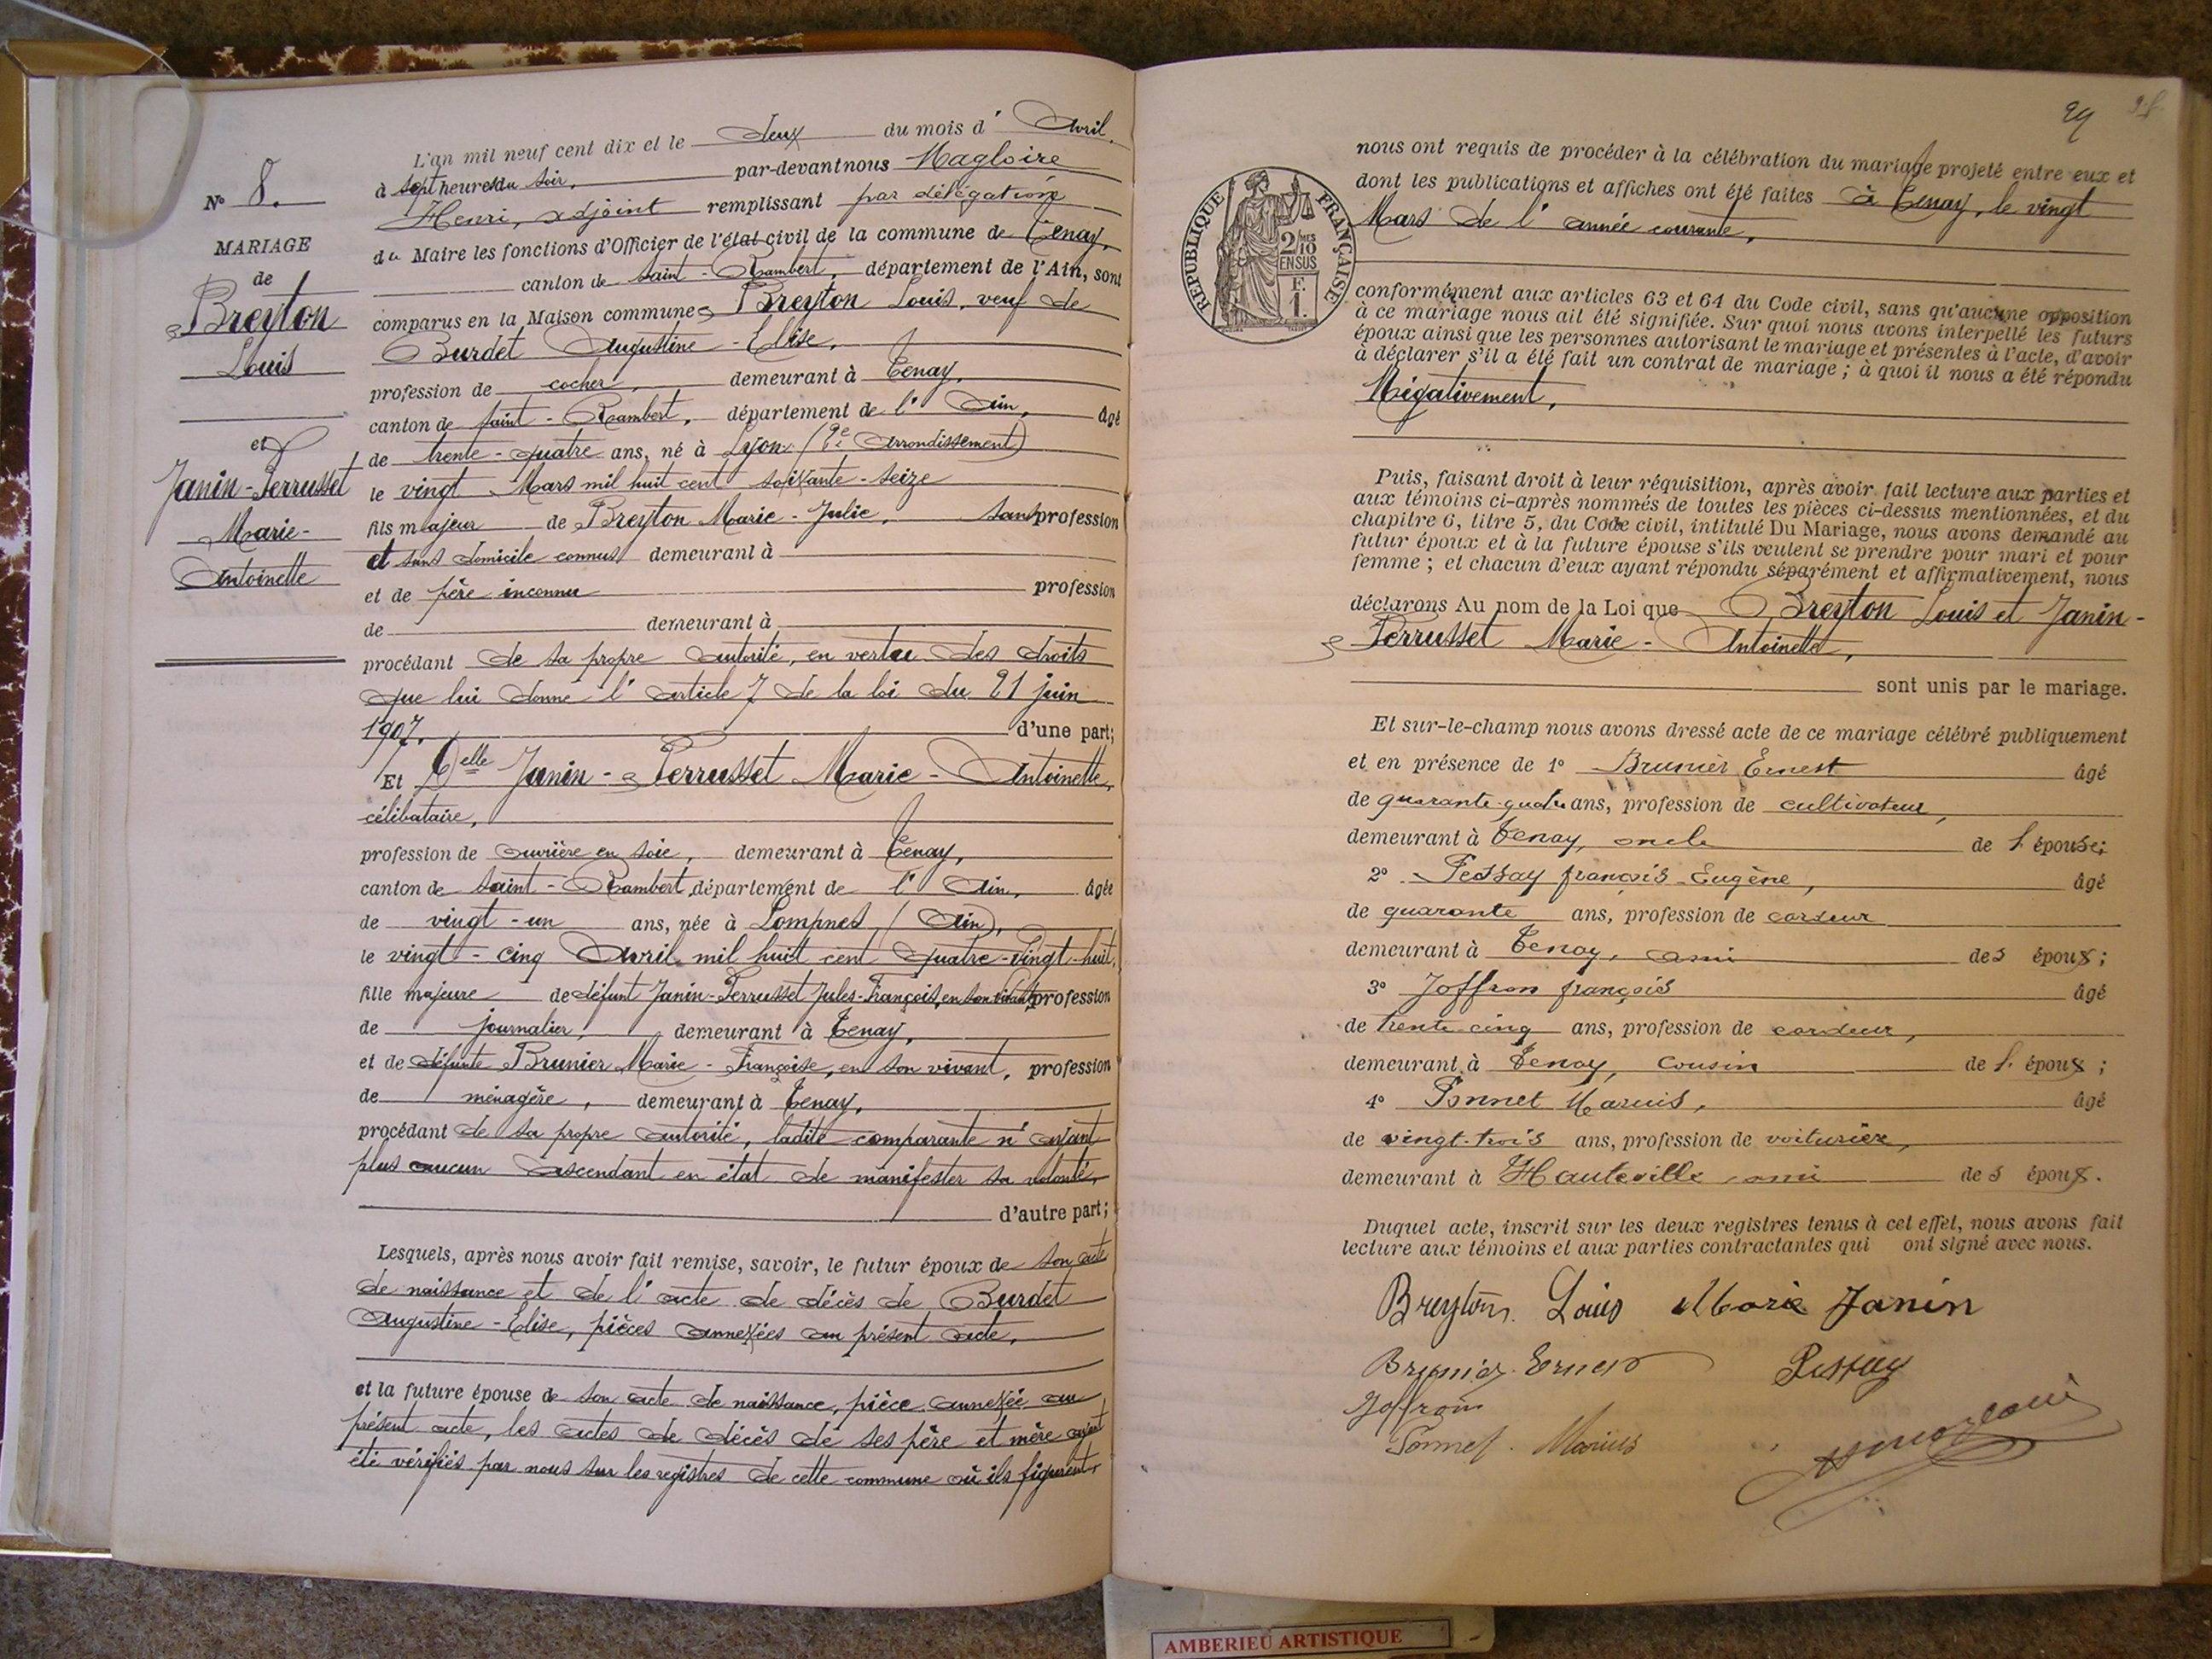 L'an mil neuf cent dix et le deux du mois d' Avril
à sept heures du soir, par-devant nous Magloire
Henri, adjoint remplissant par délégation
du Maire les fonctions d'Officier de l'état civil de la commune de Tenay,
canton de Saint-Rambert, département de l'Ain, sont
comparus en la Maison commune Breyton Louis, veuf de
Burdet Augustine-Elise,
profession de cocher, demeurant à Tenay,
canton de Saint-Rambert, département de l' Ain, âgé
de trente-quatre ans, né à Lyon (2e Arrondissement)
le vingt Mars mil huit cent soixante-seize
fils majeur de Breyton Marie-Julie, sans profession
et sans domicile connus demeurant à
et de père inconnu profession
de demeurant à
procédant de sa propre autorité, en vertu des droits
que lui donne l'article 7 de la loi du 21 juin
1907. d'une part;
Et Delle Janin-Perrusset Marie-Antoinette,
célibataire,
profession de ouvrière en soie, demeurant à Tenay,
canton de Saint-Rambert, département de l' Ain, âgée
de vingt-un ans, née à Lompnes, (Ain),
le vingt-cinq Avril mil huit cent quatre-vingt-huit,
fille majeure de défunt Janin-Perrusset Jules-François, en son vivant, profession
de journalier, demeurant à Tenay,
et de défunte Brunier Marie-Françoise, en son vivant, profession
de ménagère, demeurant à Tenay,
procédant de sa propre autorité, ladite comparante n'ayant
plus aucun ascendant en état de manifester sa volonté,
d'autre part;
Lesquels, après nous avoir fait remise, savoir, le futur époux de son acte
de naissance et de l'acte de décès de Burdet
Augustine-Elise, pièces annexées au présent acte,
et la future épouse de son acte de naissance, pièce annexée au
présent acte, les actes de décès de ses père et mère ayant
été vérifiés par nous sur les registres de cette commune où ils figurent,
N° 8.
MARIAGE
de
Breyton
Louis
et
Janin-Perrusset
Marie-
Antoinette
29
nous ont requis de procéder à la célébration du mariage projeté entre eux et
dont les publications et affiches ont été faites à Tenay, le vingt
Mars de l'année courante,
RÉPUBLIQUE FRANÇAISE
2/MES
10
EN SUS
F.
1.
conformément aux articles 63 et 64 du Code civil, sans qu'aucune opposition
à ce mariage nous ait été signifiée. Sur quoi nous avons interpellé les futurs
époux ainsi que les personnes autorisant le mariage et présentes à l'acte, d'avoir
à déclarer s'il a été fait un contrat de mariage ; à quoi il nous a été répondu
Négativement,
Puis, faisant droit à leur réquisition, après avoir fait lecture aux parties et
aux témoins ci-après nommés de toutes les pièces ci-dessus mentionnées, et du
chapitre 6, titre 5, du Code civil, intitulé Du Mariage, nous avons demandé au
futur époux et à la future épouse s'ils veulent se prendre pour mari et pour
femme ; et chacun d'eux ayant répondu séparément et affirmativement, nous
déclarons Au nom de la Loi que Breyton Louis et Janin-
Perrusset Marie-Antoinette,
sont unis par le mariage.
Et sur-le-champ nous avons dressé acte de ce mariage célébré publiquement
et en présence de 1° Brunier Ernest âgé
de quarante-quatre ans, profession de cultivateur,
demeurant à Tenay, oncle de l'épouse;
2° Pessay françois-Eugène, âgé
de quarante ans, profession de cardeur
demeurant à Tenay, ami des époux;
3° Joffron françois âgé
de trente-cinq ans, profession de cardeur,
demeurant à Tenay, cousin de l'époux ;
4° Ponnet Marius, âgé
de vingt-trois ans, profession de voiturier,
demeurant à Hauteville ami des époux.
Duquel acte, inscrit sur les deux registres tenus à cet effet, nous avons fait
lecture aux témoins et aux parties contractantes qui ont signé avec nous.
Breyton Louis Marie Janin
Brunier Ernest Pessay
Joffron
Ponnet Marius
AMBERIEU ARTISTIQUE